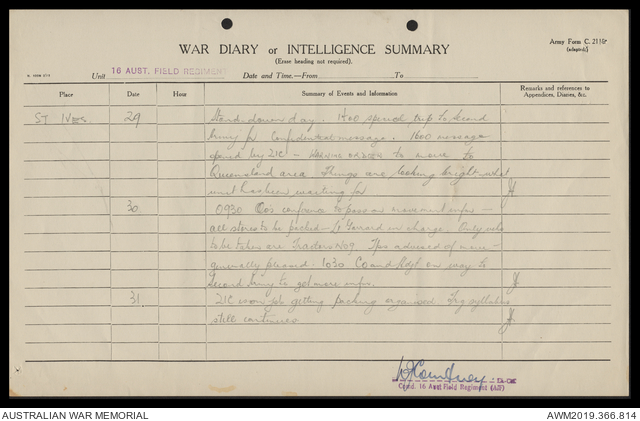 Army Form C. 2118
(adapted).
WAR DIARY or INTELLIGENCE SUMMARY
(Erase heading not required).
Unit 16 AUST. FIELD REGIMENT Date and Time.—From To
Place Date Hour Summary of Events and Information Remarks and references to Appendices, Diaries, &c.
ST IVES 29 Stand down day. 1400 special trip to Second
Army for confidential message. 1600 message
opened by 2IC — WARNING ORDER to move to
Queensland area. Things are looking bright, what
unit has been waiting for
30 0930 Co's conference to pass on movement infm —
all stores to be packed — in charge. Only
to be taken are Tractors No9. advised of move
generally pleased. 1030 CO and Adjt on way to
Second Army to get more infm.
31. 2IC is on job getting packing organised. Trg syllabus
still continues
Comd. 16 Aust Field Regiment (AIF)
AUSTRALIAN WAR MEMORIAL
AWM2019.366.814